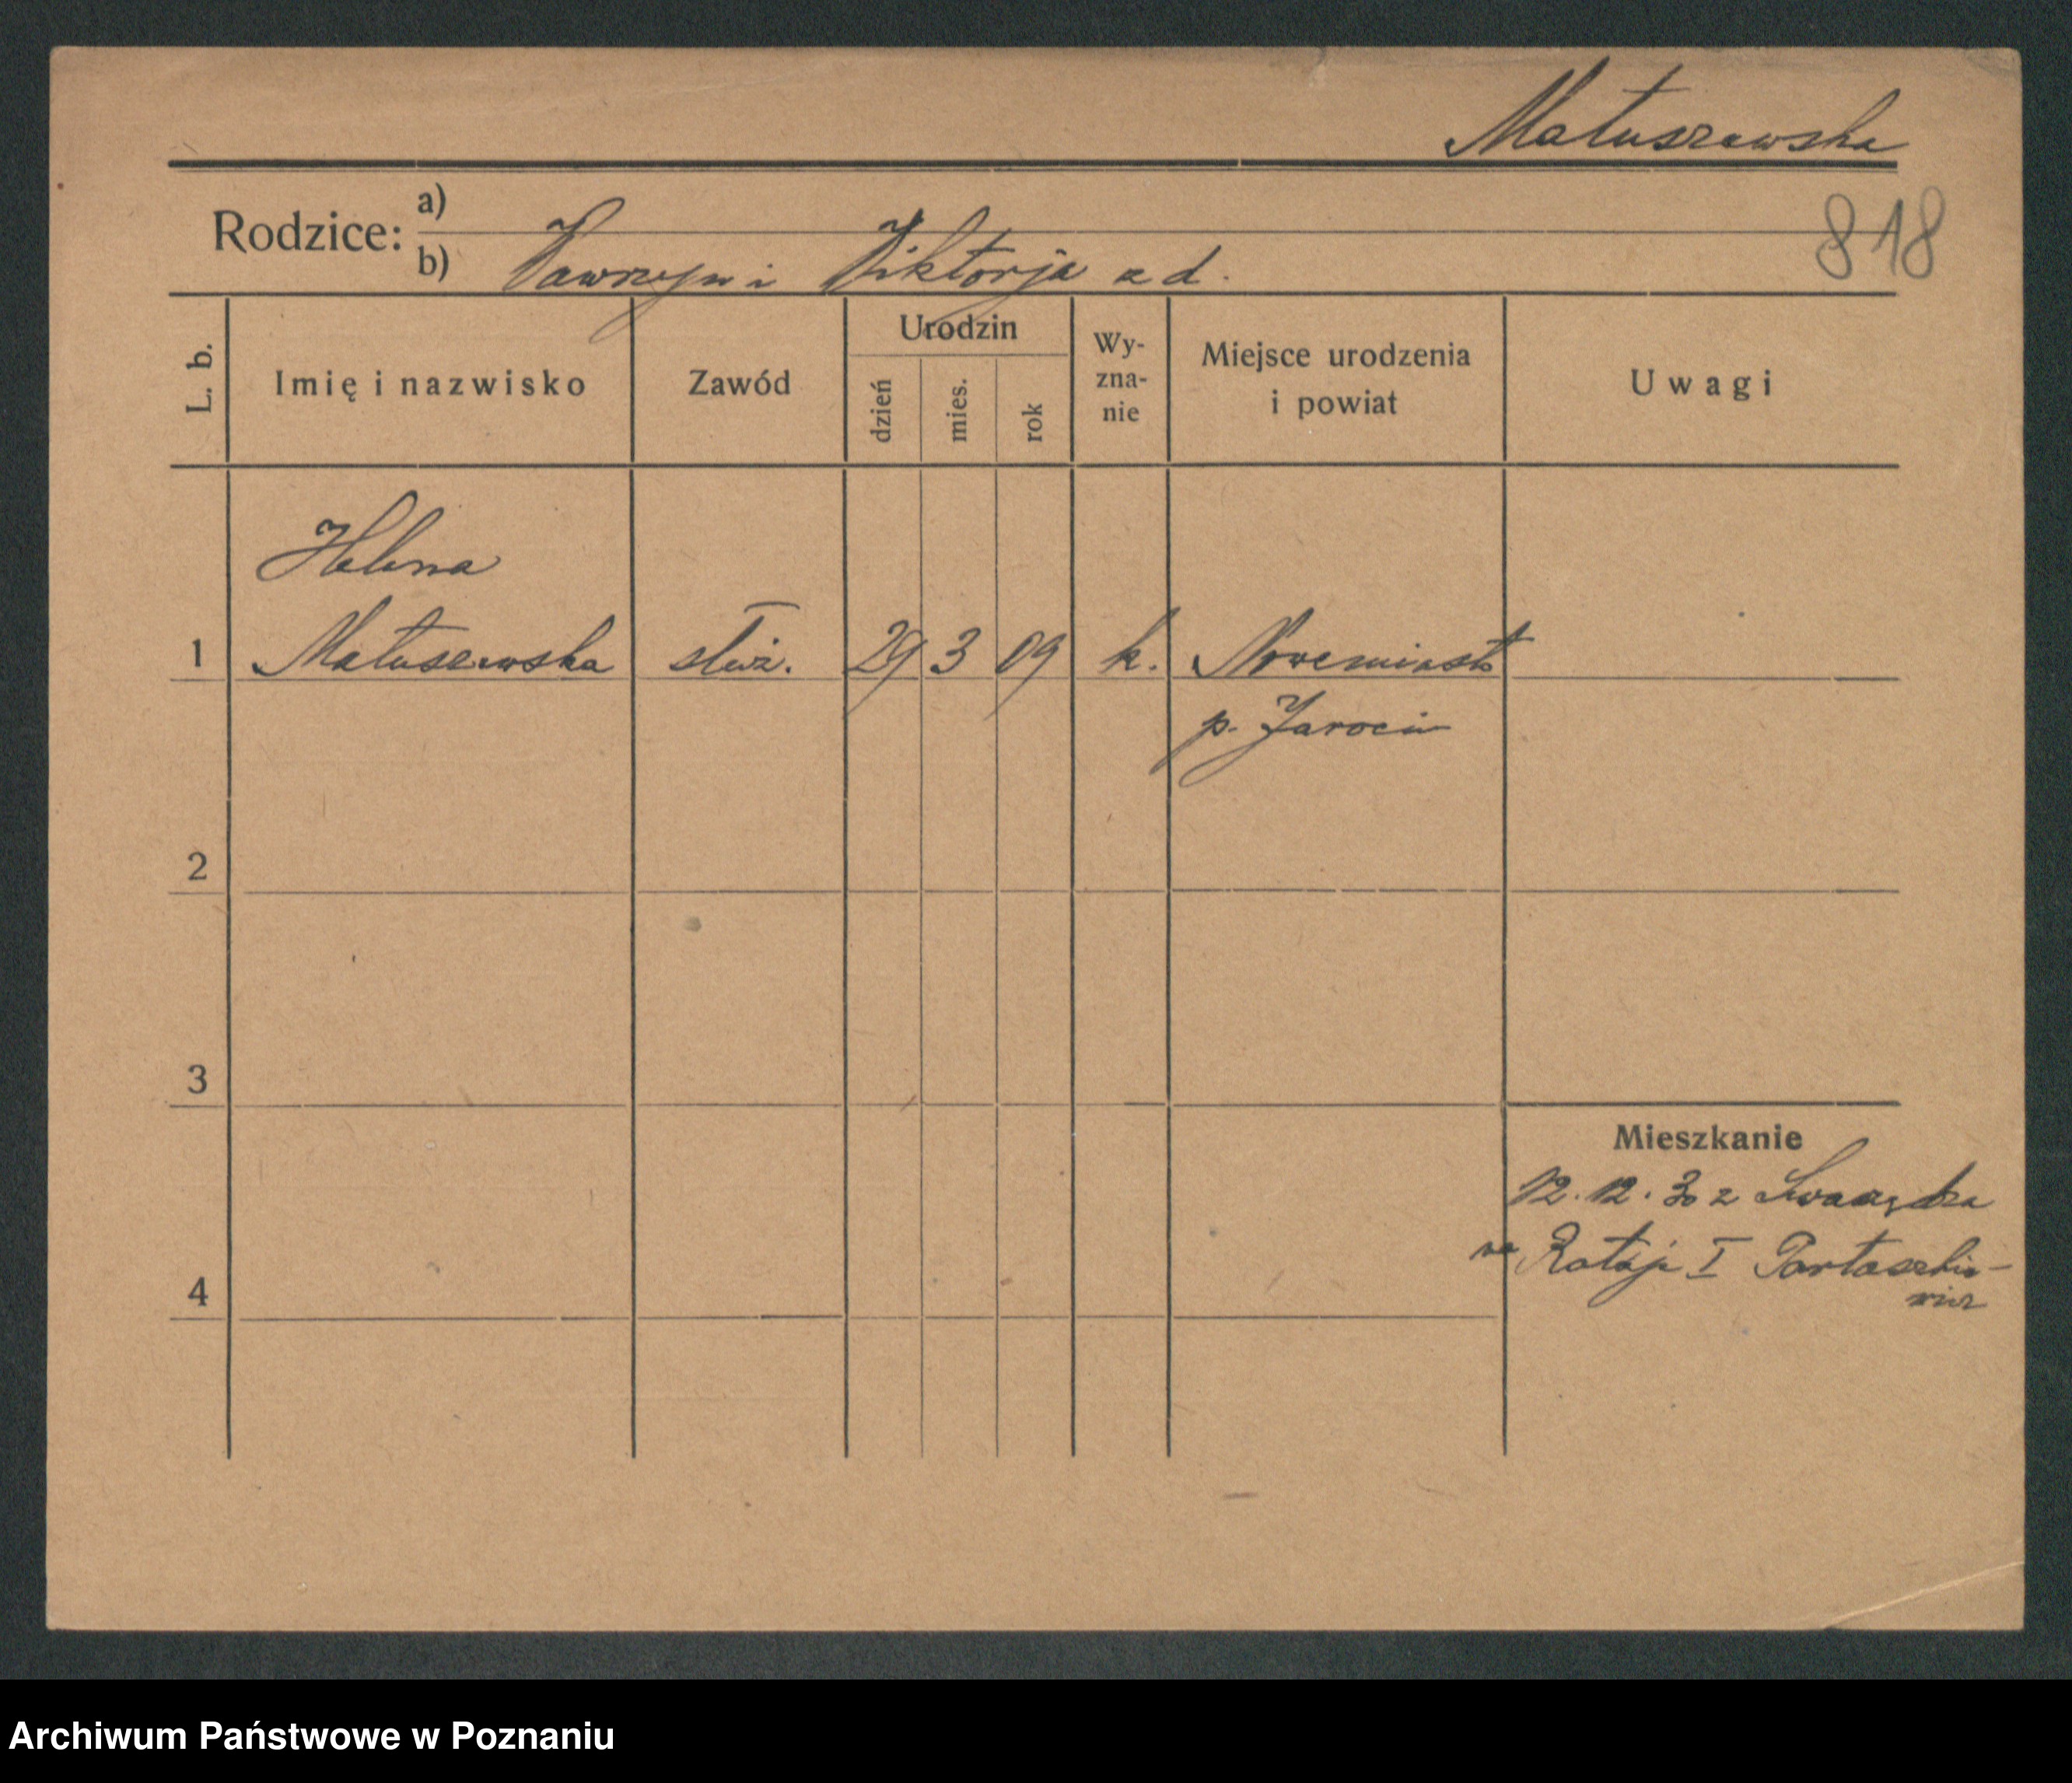 Matuszewska
818
Rodzice: a)
b) Wawrzyn i Wiktorja z d.
L. b. Imię i nazwisko Zawód Urodzin dzień mies. rok Wy-zna-nie Miejsce urodzenia i powiat Uwagi
Helena
1 Matuszewska służ. 29 3 09 k. Nowemiasto
p. Jarocin
2
3
Mieszkanie
12.12.30 z Swarzędza
na Rataje I
4
Archiwum Państwowe w Poznaniu